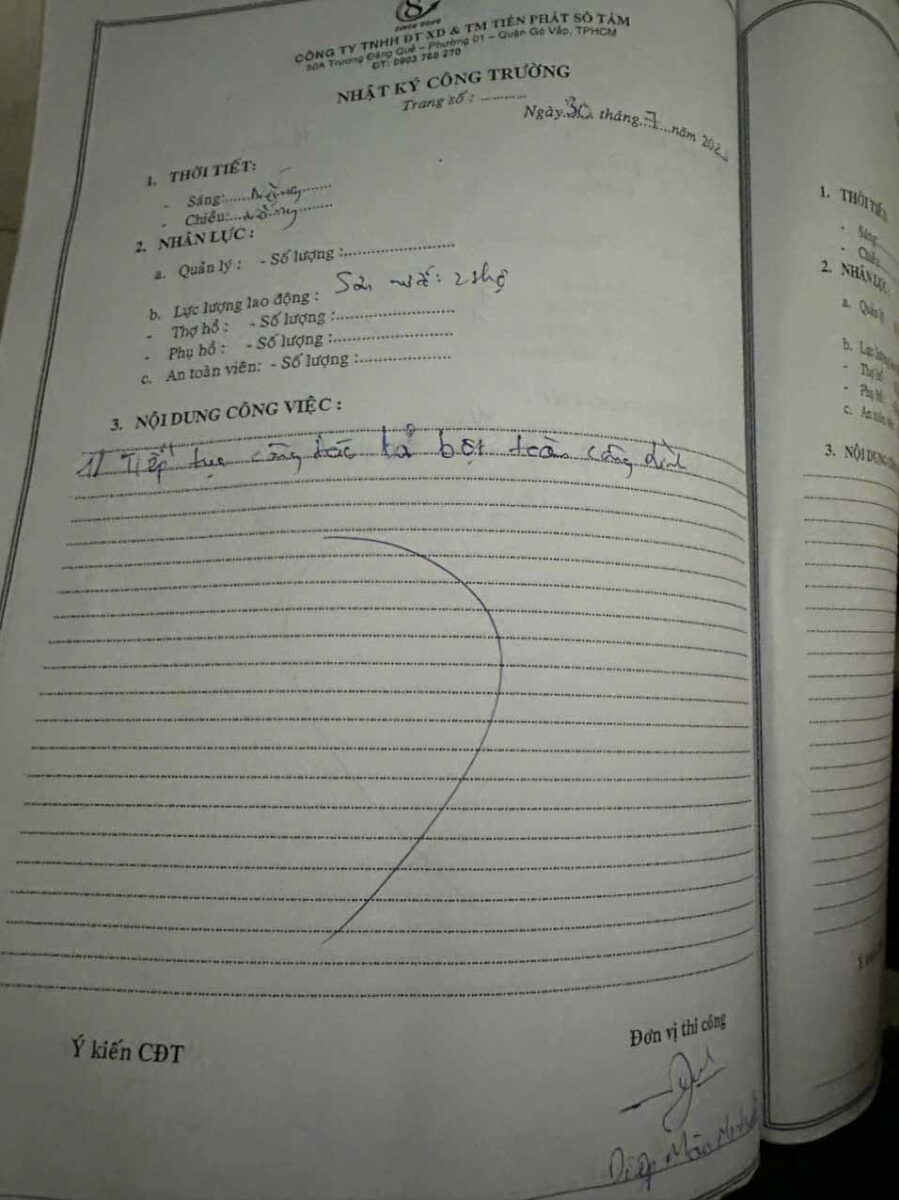 SINCE 2008
CÔNG TY TNHH ĐT XD & TM TIẾN PHÁT SỐ TÁM
50A Trương Đăng Quế – Phường 01 – Quận Gò Vấp, TPHCM
ĐT: 0903 768 270
NHẬT KÝ CÔNG TRƯỜNG
Trang số : ...........
Ngày 30 tháng 7 năm 202
1. THỜI TIẾT:
- Sáng: Nắng
- Chiều: nắng
2. NHÂN LỰC :
a. Quản lý : - Số lượng :
b. Lực lượng lao động : Sơn nước: 2 thợ
- Thợ hồ : - Số lượng :
- Phụ hồ : - Số lượng :
c. An toàn viên: - Số lượng :
3. NỘI DUNG CÔNG VIỆC :
1/ Tiếp tục công tác bả bột toàn công trình
Ý kiến CĐT
Đơn vị thi công
Diệp Mẫn
1. THỜI TIẾ
- Sáng:
- Chiều:
2. NHÂN LỰC
a. Quản lý
b. Lực lượng
- Thợ
- Phụ
c. An toàn
3. NỘI DUNG